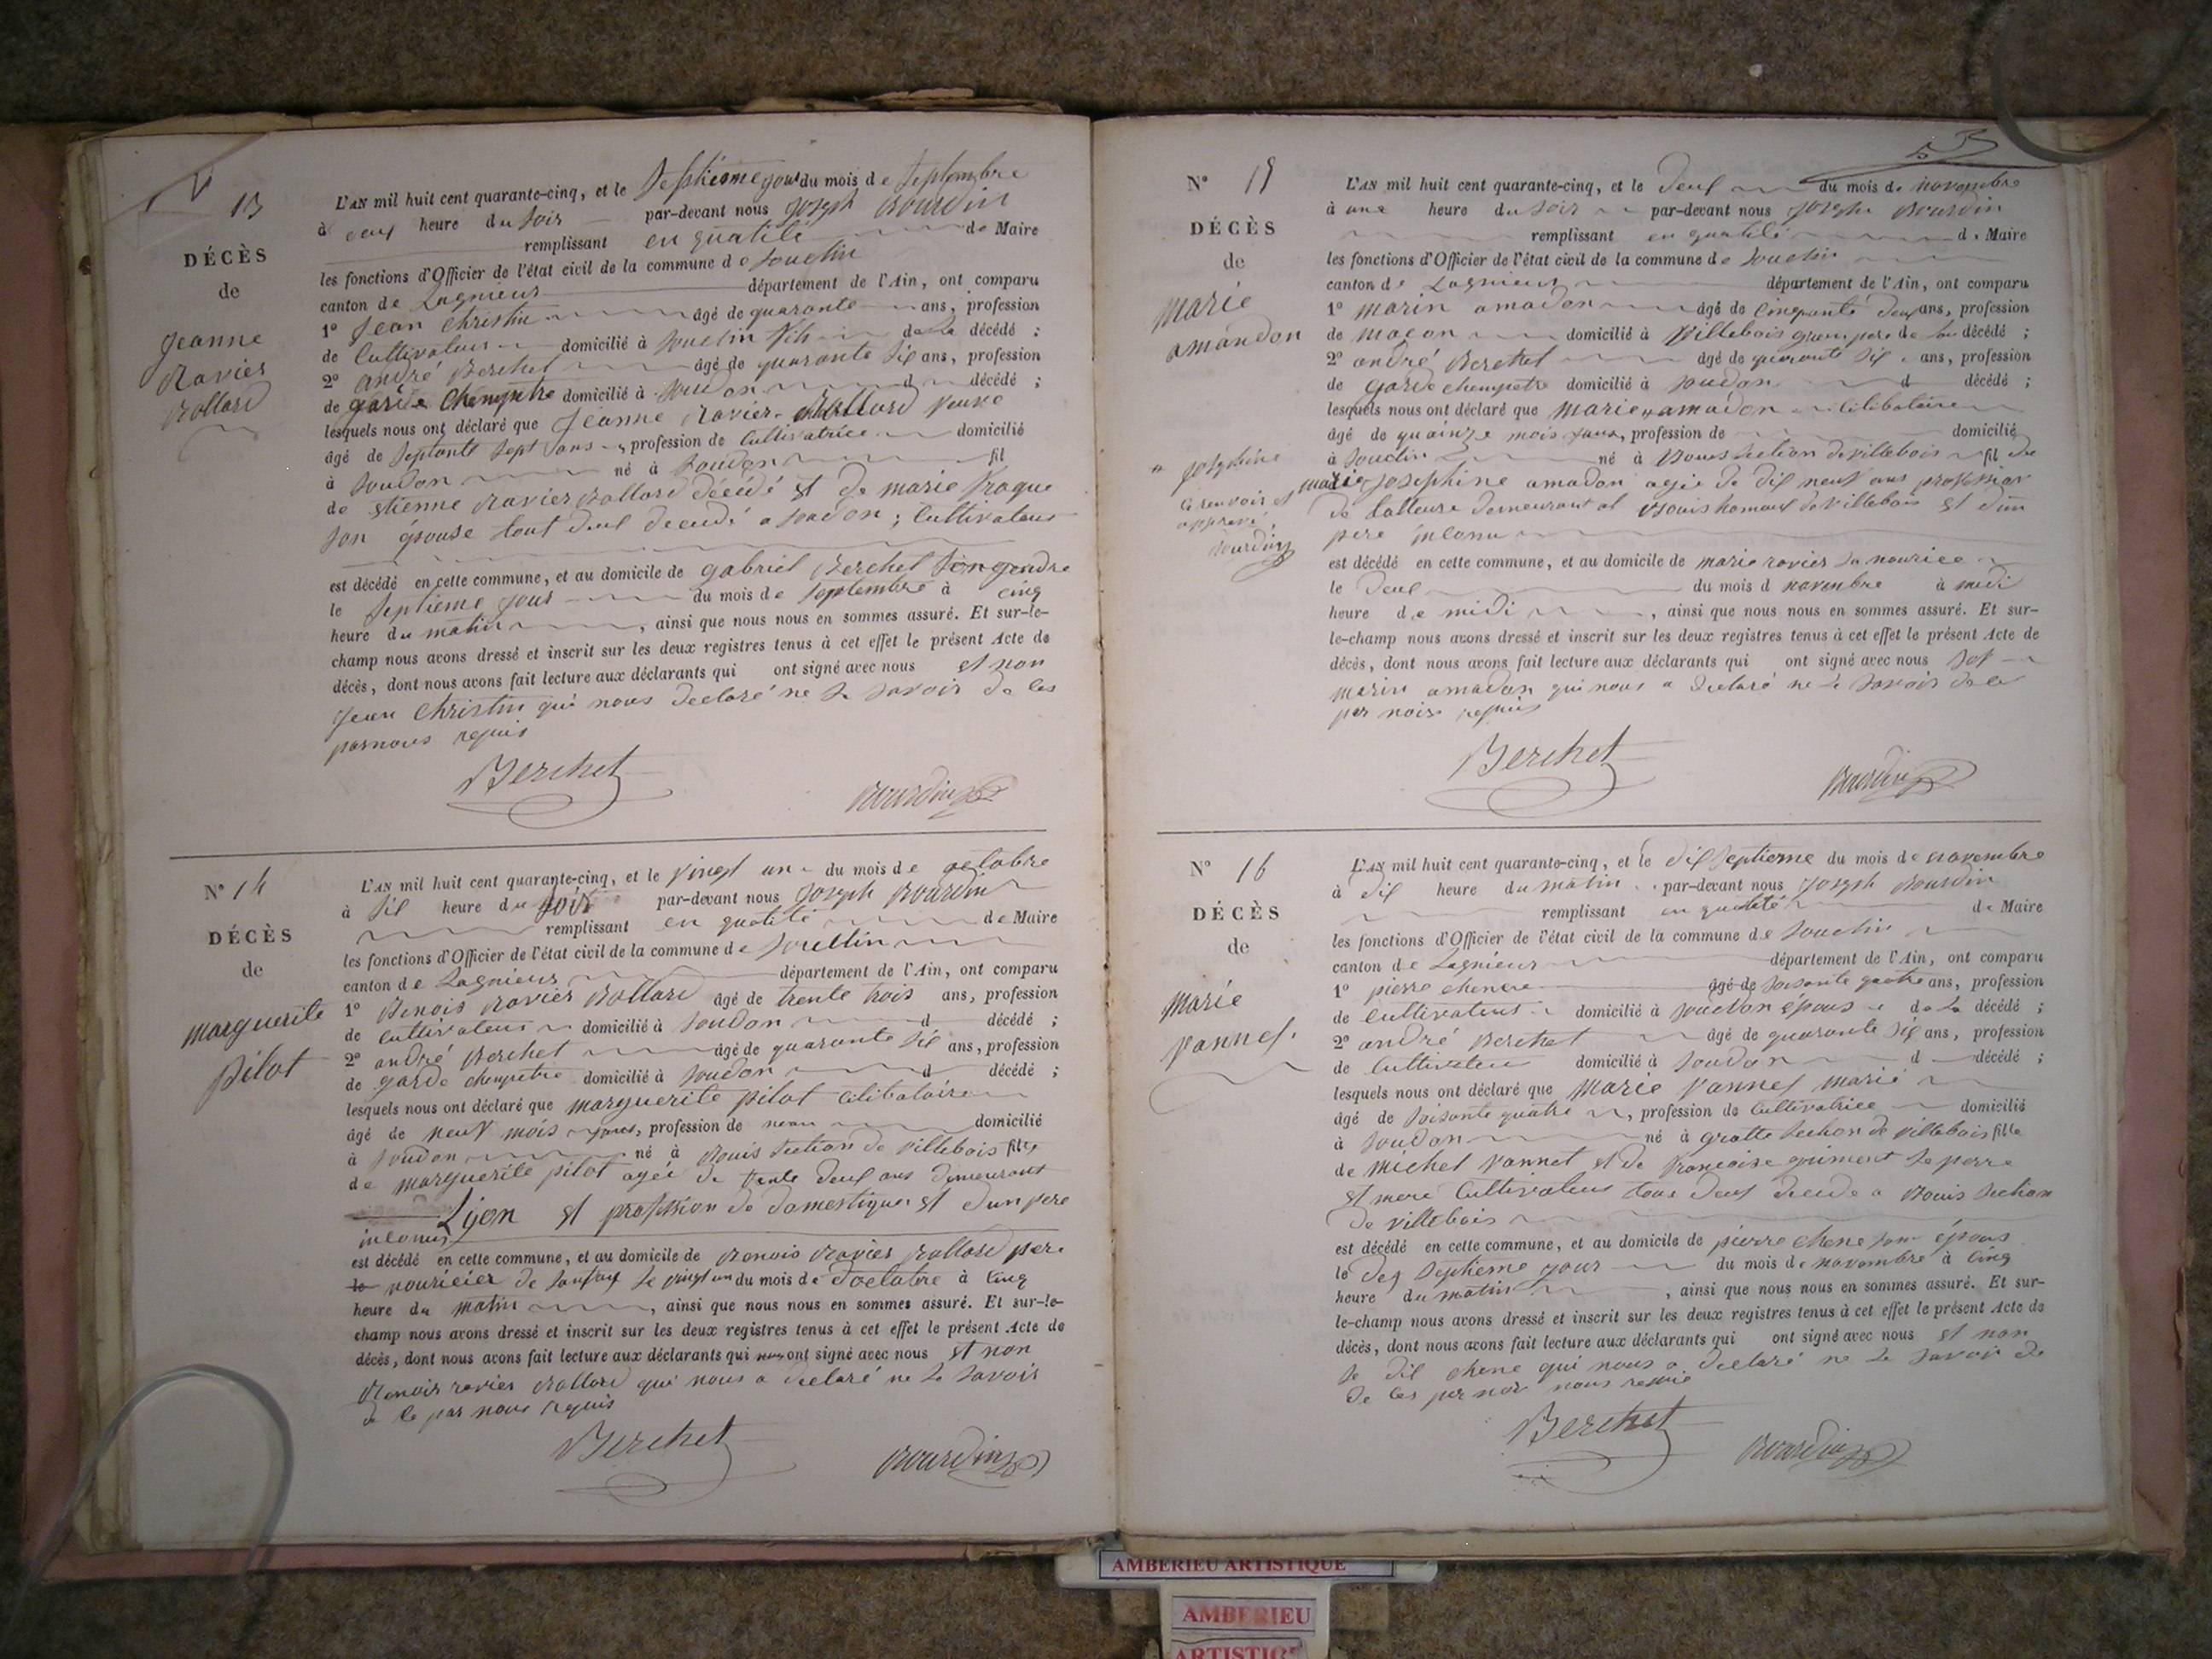 13
DÉCÈS
de
Jeanne
Ravier
Rollard
L'AN mil huit cent quarante-cinq, et le septieme jour du mois de septembre
à heure du soir par-devant nous joseph Bourdin
remplissant en qualité de Maire
les fonctions d'Officier de l'état civil de la commune de souclin
canton de Lagnieux département de l'Ain, ont comparu
1° Jean Christin âgé de quarante ans, profession
de Cultivateur domicilié à souclin de la décédé ;
2° andré Berchet âgé de quarante six ans, profession
de garde champetre domicilié à soudon d décédé ;
lesquels nous ont déclaré que Jeanne Ravier Rollard veuve
âgé de septante sept ans, profession de Cultivatrice domicilié
à soudon né à soudon fil
de etienne Ravier Rollard décédé et de marie
son épouse tout deux decedé a soudon ; Cultivateur
est décédé en cette commune, et au domicile de gabriel Berchet son gendre
le septieme jour du mois de septembre à cinq
heure du matin, ainsi que nous nous en sommes assuré. Et sur-le-
champ nous avons dressé et inscrit sur les deux registres tenus à cet effet le présent Acte de
décès, dont nous avons fait lecture aux déclarants qui ont signé avec nous et non
jean Christin qui nous declaré ne le savoir de les
par nous requis
Berchet Bourdin
N° 14
DÉCÈS
de
marguerite
pilot
L'AN mil huit cent quarante-cinq, et le vingt un du mois de octobre
à six heure du soir par-devant nous Joseph Bourdin
remplissant en qualité de Maire
les fonctions d'Officier de l'état civil de la commune de souclin
canton de Lagnieux département de l'Ain, ont comparu
1° Benois Ravier Rollard âgé de trente trois ans, profession
de Cultivateur domicilié à soudon d décédé ;
2° andré Berchet âgé de quarante six ans, profession
de garde champetre domicilié à soudon d décédé ;
lesquels nous ont déclaré que marguerite pilot celibataire
âgé de neuf mois, profession de domicilié
à soudon né à Bouis section de villebois fille
de marguerite pilot agée de trente deux ans demeurant
Lyon et profession de domestique et d'un pere
inconnu
est décédé en cette commune, et au domicile de Benois Ravier Rollard pere
nouricier de le vingt un du mois de d'octobre à cinq
heure du matin, ainsi que nous nous en sommes assuré. Et sur-le-
champ nous avons dressé et inscrit sur les deux registres tenus à cet effet le présent Acte de
décès, dont nous avons fait lecture aux déclarants qui ont signé avec nous et non
Benois ravier Rollard qui nous a declaré ne le savoir
de le par nous requis
Berchet Bourdin
N° 15
DÉCÈS
de
marie
amandon
josephine
le renvoir et
approuvé
Bourdin
L'AN mil huit cent quarante-cinq, et le deux du mois de novembre
à une heure du soir par-devant nous joseph Bourdin
remplissant en qualité de Maire
les fonctions d'Officier de l'état civil de la commune de souclin
canton de Lagnieux département de l'Ain, ont comparu
1° marin amadon âgé de cinquante deux ans, profession
de maçon domicilié à villebois grand pere de la décédé ;
2° andré Berchet âgé de quarante six ans, profession
de garde champetre domicilié à soudon d décédé ;
lesquels nous ont déclaré que marie amadon celibataire
âgé de quinze mois, profession de domicilié
à souclin né à Bouis section de villebois fil de
marie josephine amadon agée de dix neuf ans profession
de demeurant de villebois et d'un
pere inconu
est décédé en cette commune, et au domicile de marie ravier sa nourice
le deux du mois d novembre à midi
heure de midi, ainsi que nous nous en sommes assuré. Et sur-
le-champ nous avons dressé et inscrit sur les deux registres tenus à cet effet le présent Acte de
décès, dont nous avons fait lecture aux déclarants qui ont signé avec nous
marin amadon qui nous a declaré ne le savoir de le
par requis
Berchet Bourdin
N° 16
DÉCÈS
de
marie
vannet
L'AN mil huit cent quarante-cinq, et le dix septieme du mois de novembre
à dix heure du matin par-devant nous joseph Bourdin
remplissant en qualité de Maire
les fonctions d'Officier de l'état civil de la commune de souclin
canton de Lagnieux département de l'Ain, ont comparu
1° pierre âgé de soisante quatre ans, profession
de cultivateur domicilié à époux de la décédé ;
2° andré Berchet âgé de quarante six ans, profession
de Cultivateur domicilié à soudon d décédé ;
lesquels nous ont déclaré que marie vannet marié
âgé de soisante quatre, profession de Cultivatrice domicilié
à soudon né à section de villebois fille
de michel vannet et de françoise le perre
et mere Cultivateur tous deux decedé a Bouis section
de villebois
est décédé en cette commune, et au domicile de pierre chene son époux
le septieme jour du mois de novembre à cinq
heure du matin, ainsi que nous nous en sommes assuré. Et sur-
le-champ nous avons dressé et inscrit sur les deux registres tenus à cet effet le présent Acte de
décès, dont nous avons fait lecture aux déclarants qui ont signé avec nous et non
le dit chene qui nous a declaré ne le savoir de
de les par nous requis
Berchet Bourdin
AMBERIEU ARTISTIQUE
AMBERIEU